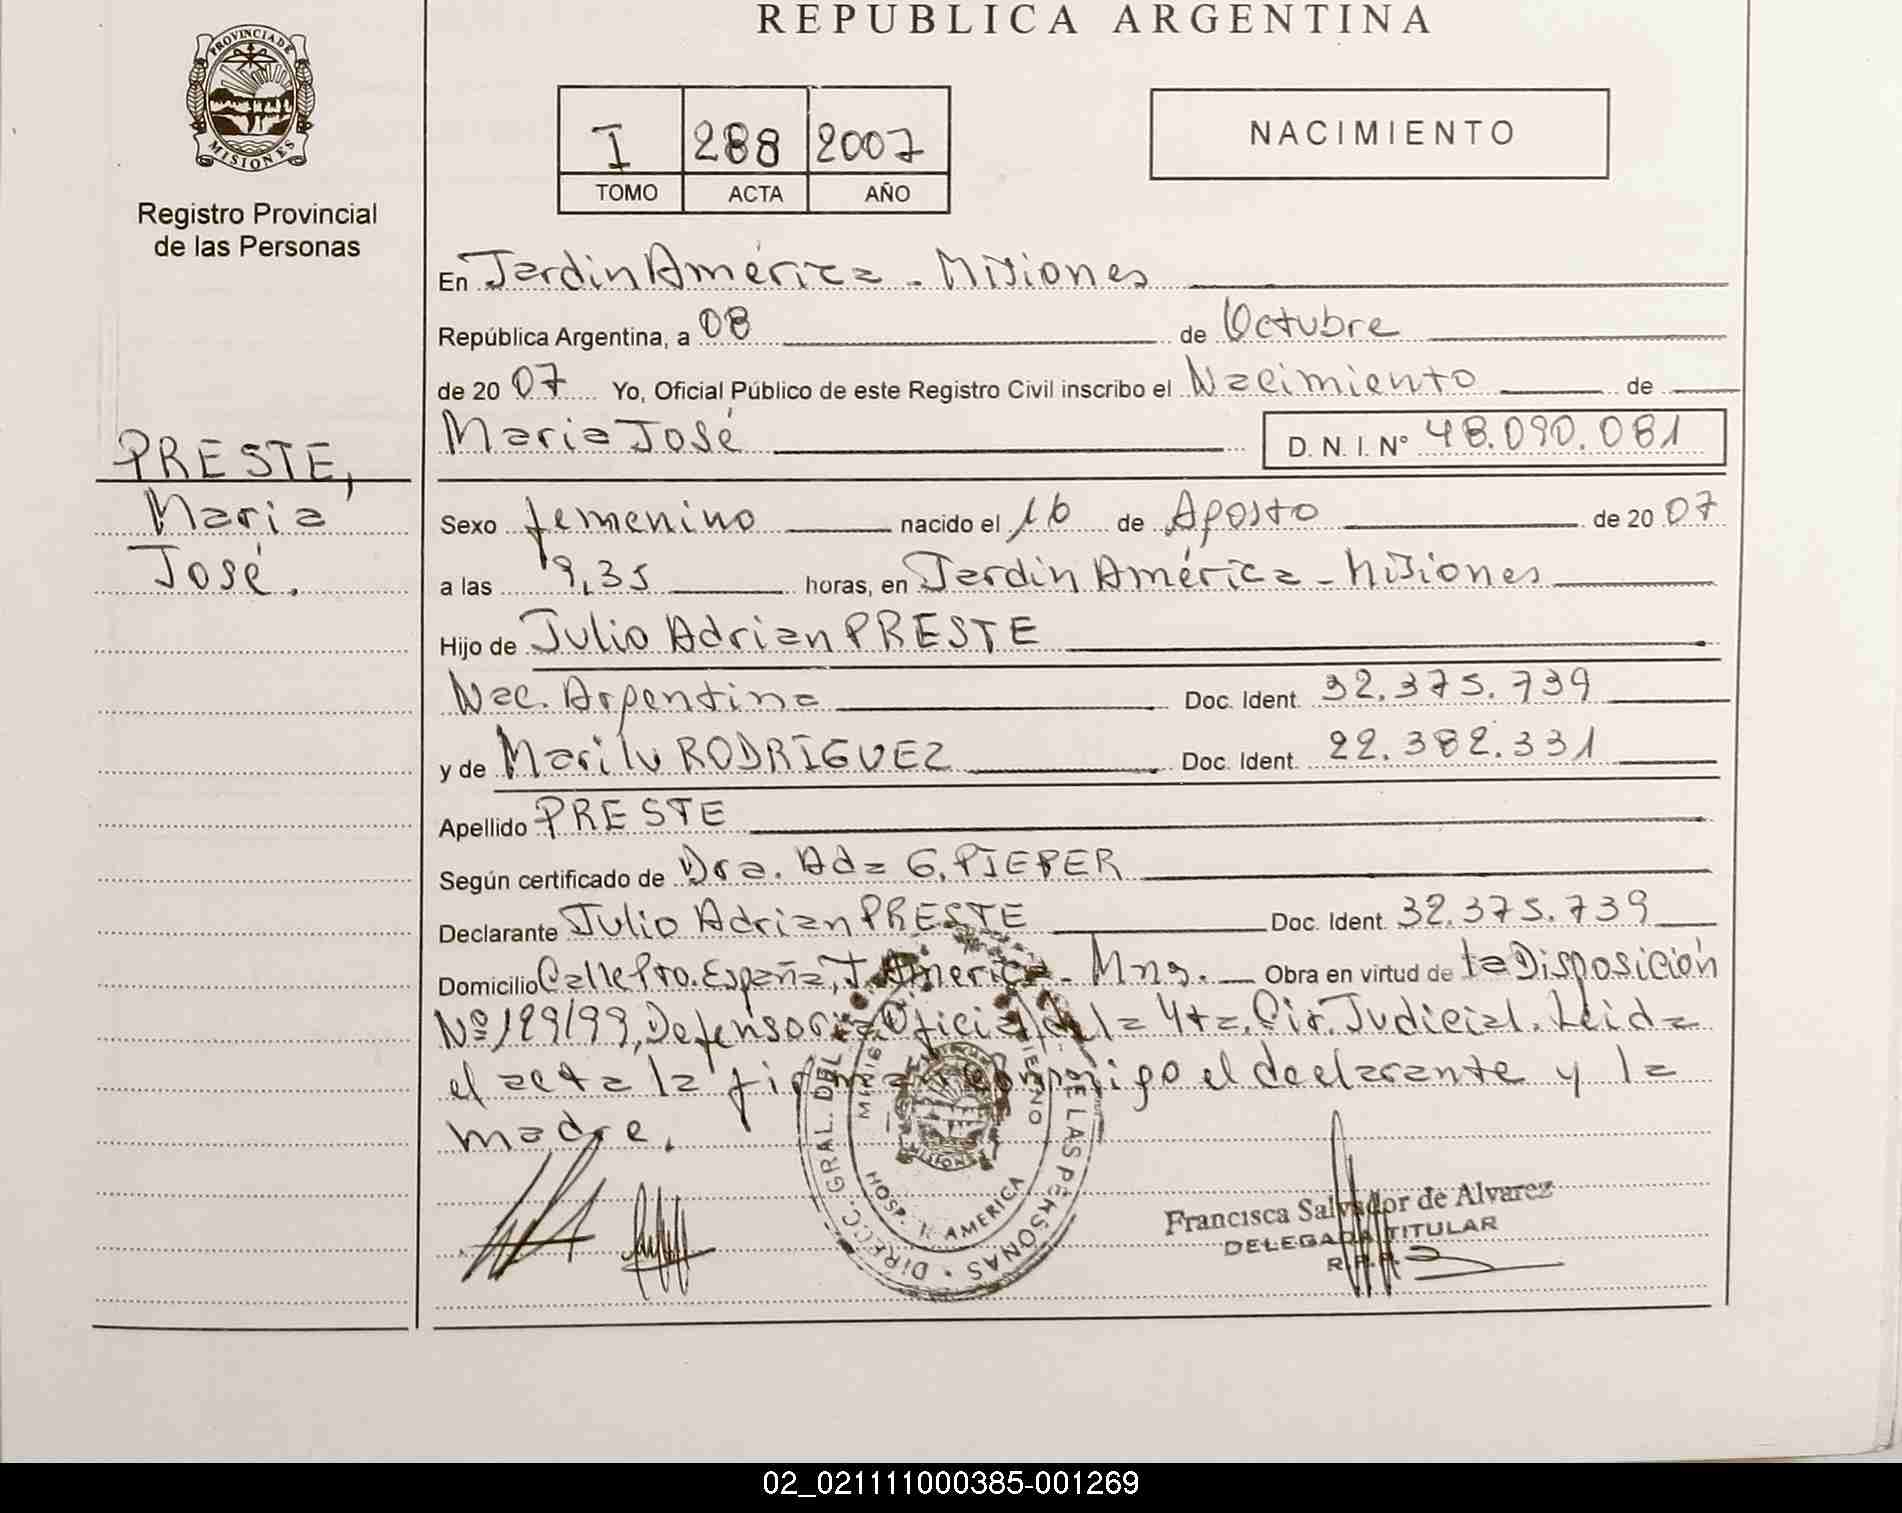 REPUBLICA ARGENTINA
PROVINCIA DE
MISIONES
Registro Provincial
de las Personas
I 288 2007
TOMO ACTA AÑO
NACIMIENTO
En Jardin América - Misiones
República Argentina, a 08 de Octubre
de 2007 Yo, Oficial Público de este Registro Civil inscribo el Nacimiento de
Maria José D. N. I. N° 48.090.081
PRESTE,
Maria
José.
Sexo femenino nacido el 16 de Agosto de 2007
a las 9,35 horas, en Jardin América - Misiones
Hijo de Julio Adrian PRESTE
Nac. Argentina Doc. Ident. 32.375.739
y de Marilu RODRIGUEZ Doc. Ident. 22.382.331
Apellido PRESTE
Según certificado de Dra. Ada G. PIEPER
Declarante Julio Adrian PRESTE Doc. Ident. 32.375.739
Domicilio Calle Pto. España, J. America - Mns. Obra en virtud de la Disposición
Nº 199/99, Defensoria Oficial de la 4ta. Cir. Judicial. Leida
el acta la firman conmigo el declarante y la
madre.
DIRECC. GRAL. DEL DE LAS PERSONAS
HOSP. J. AMERICA
MISIONES
Francisca Salvador de Alvarez
DELEGADA TITULAR
R.P.P.
02_021111000385-001269